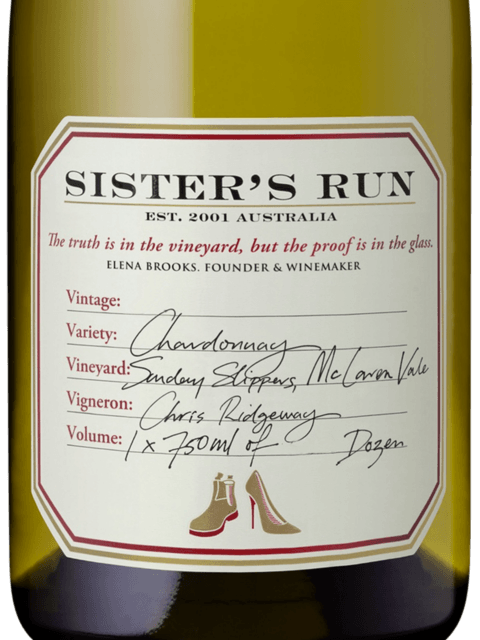 SISTER'S RUN
EST. 2001 AUSTRALIA
The truth is in the vineyard, but the proof is in the glass.
ELENA BROOKS. FOUNDER & WINEMAKER
Vintage:
Variety: Chardonnay
Vineyard: Sunday Slippers, McLaren Vale
Vigneron: Chris Ridgeway
Volume: 1 x 750ml of Dozen